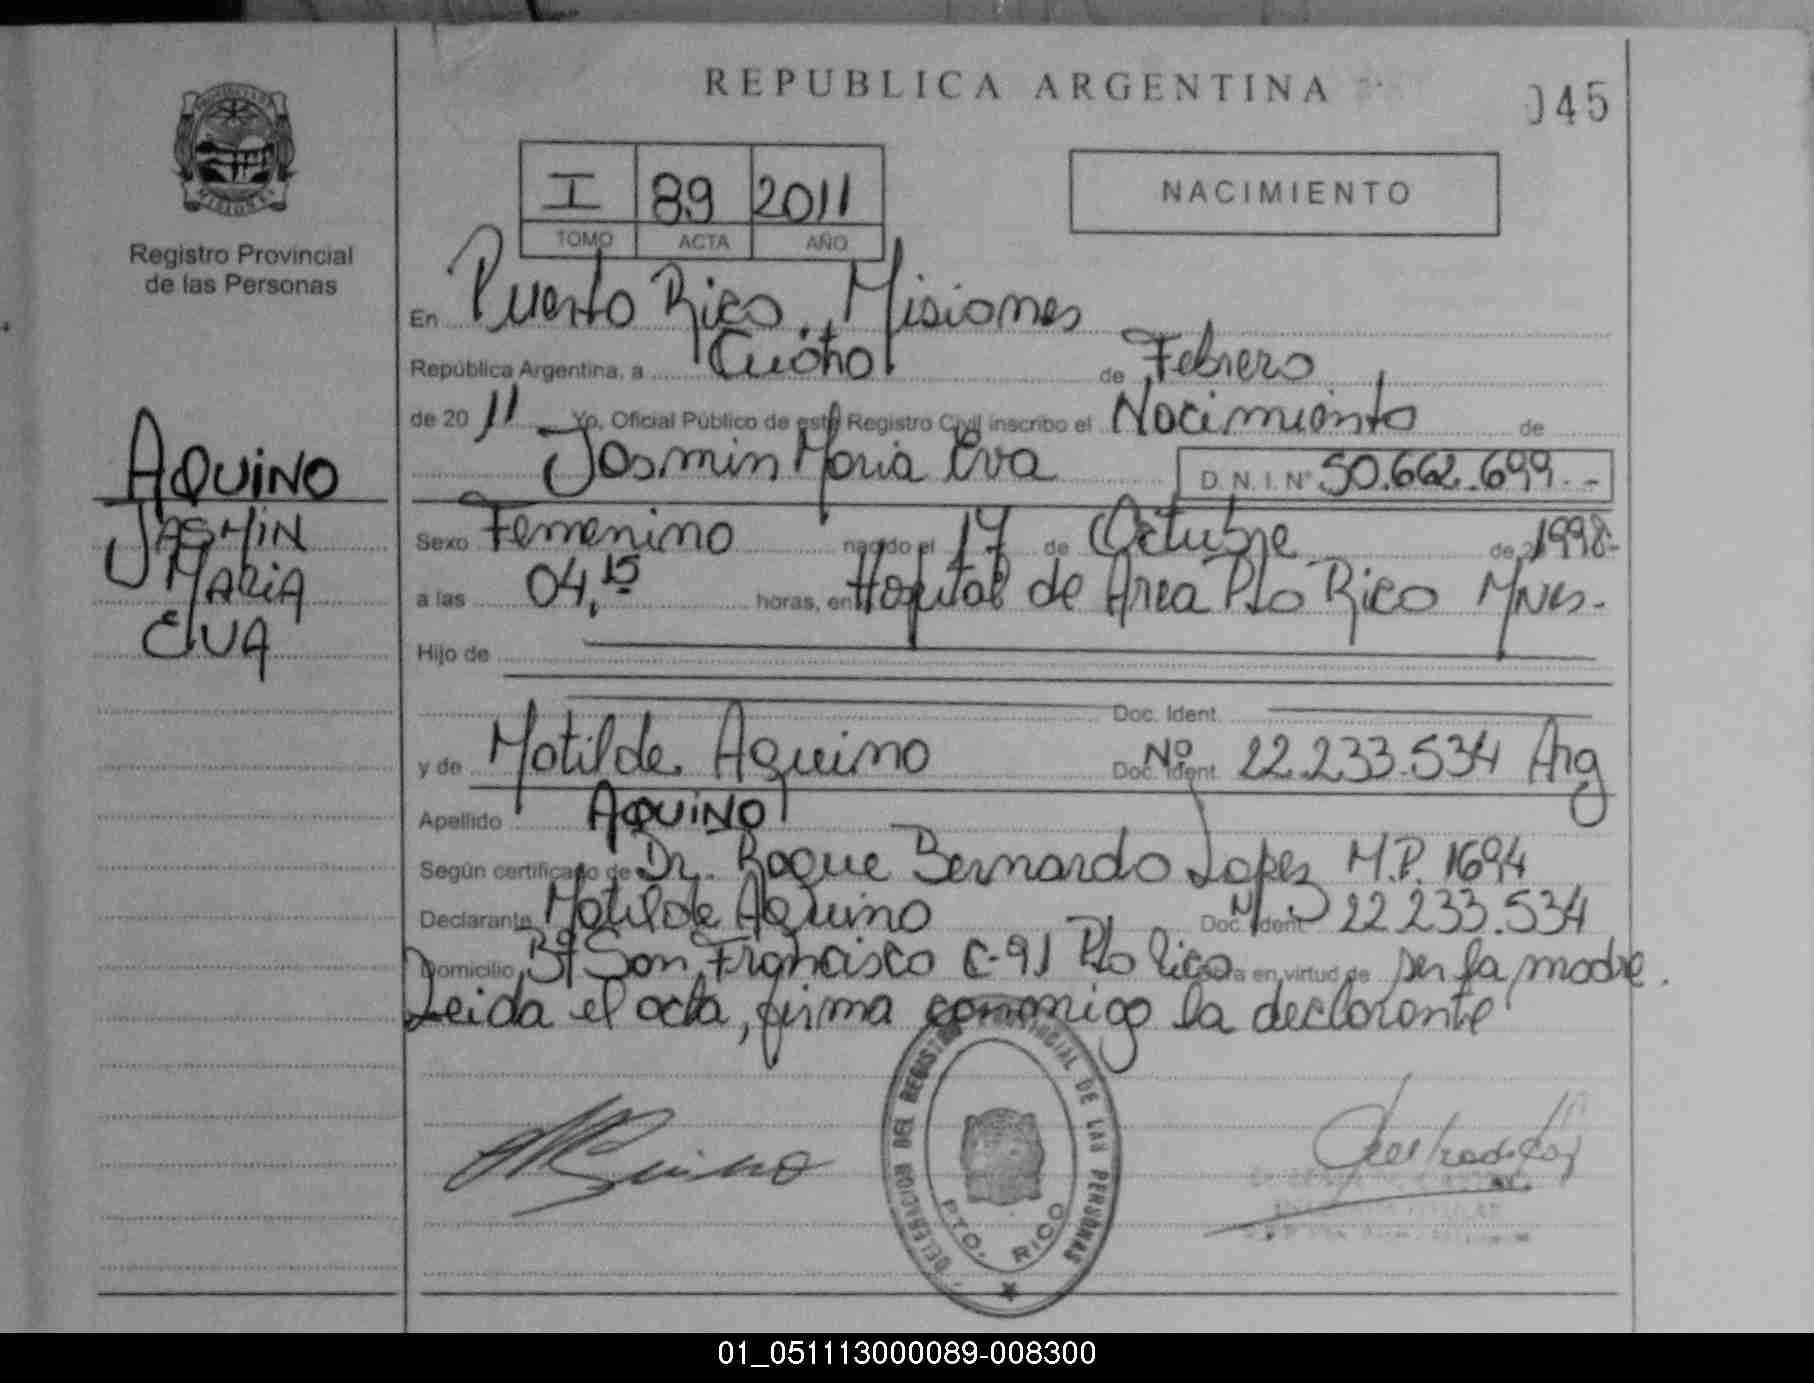 REPUBLICA ARGENTINA
045
I 89 2011
TOMO ACTA AÑO
NACIMIENTO
Registro Provincial
de las Personas
En Puerto Rico, Misiones
República Argentina, a Cuatro de Febrero
de 20 11 Yo, Oficial Público de este Registro Civil inscribo el Nacimiento de
Jasmin Maria Eva D. N. I. N° 50.662.699.-
AQUINO
JASMIN
MARIA
EVA
Sexo Femenino nacido el 17 de Octubre de 1998-
a las 04,15 horas, en Hospital de Area Pto Rico Mnes.
Hijo de
Doc. Ident.
y de Matilde Aquino Doc. Ident. Nº 22.233.534 Arg
Apellido AQUINO
Según certificado de Dr. Roque Bernardo Lopez M.P. 1694
Declarante Matilde Aquino Doc. Ident. 22.233.534
Domicilio Bº San Francisco C-91 Pto Rico en virtud de ser la madre.
Leida el acta, firma conmigo la declarante
DELEGACION DEL REGISTRO PROVINCIAL DE LAS PERSONAS
PTO. RICO
01_051113000089-008300